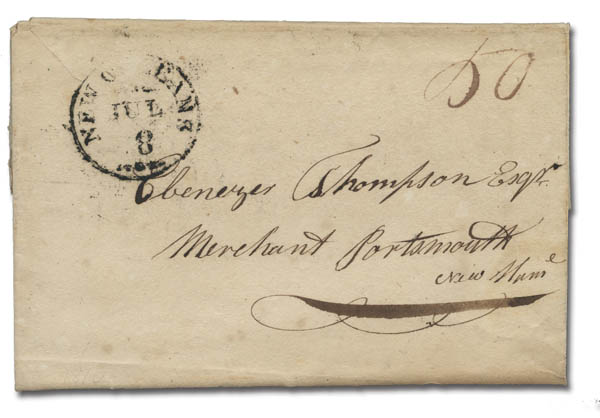 50
NEW ORLEANS
JUL
8
Ebenezer Thompson Esqr.
Merchant Portsmouth
New Hame